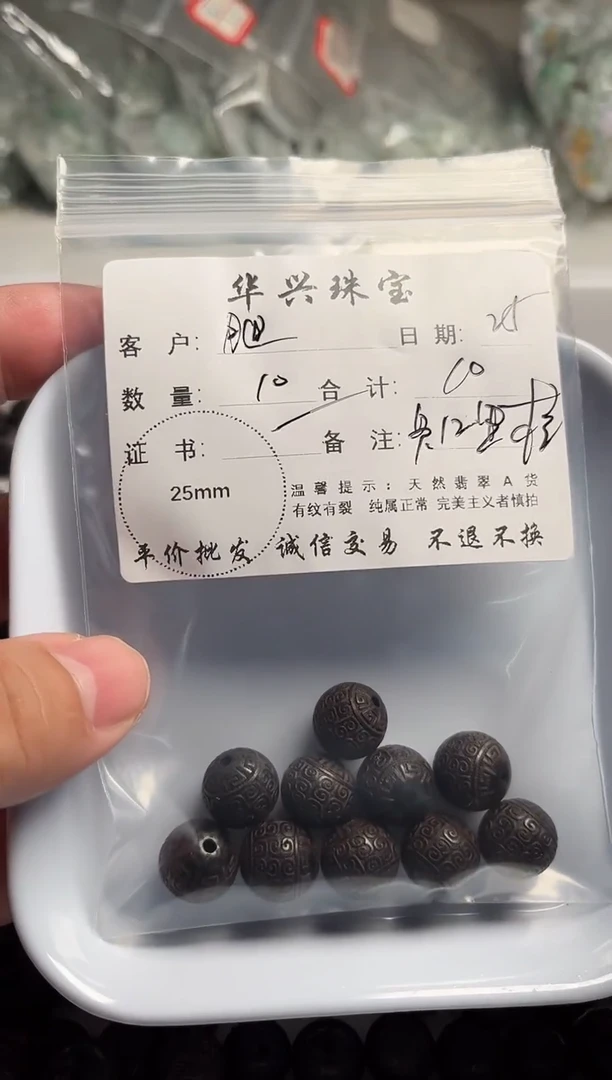 华兴珠宝
客 户: 日 期: 25
数 量: 10 合 计: 10
证 书: 备 注:
25mm
温馨提示: 天然翡翠A货
有纹有裂 纯属正常 完美主义者慎拍
平价批发 诚信交易 不退不换